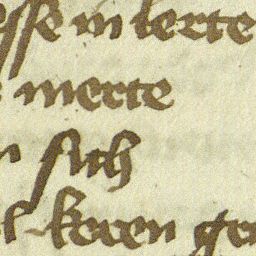 sse in lerte
merte
sich
keren gen